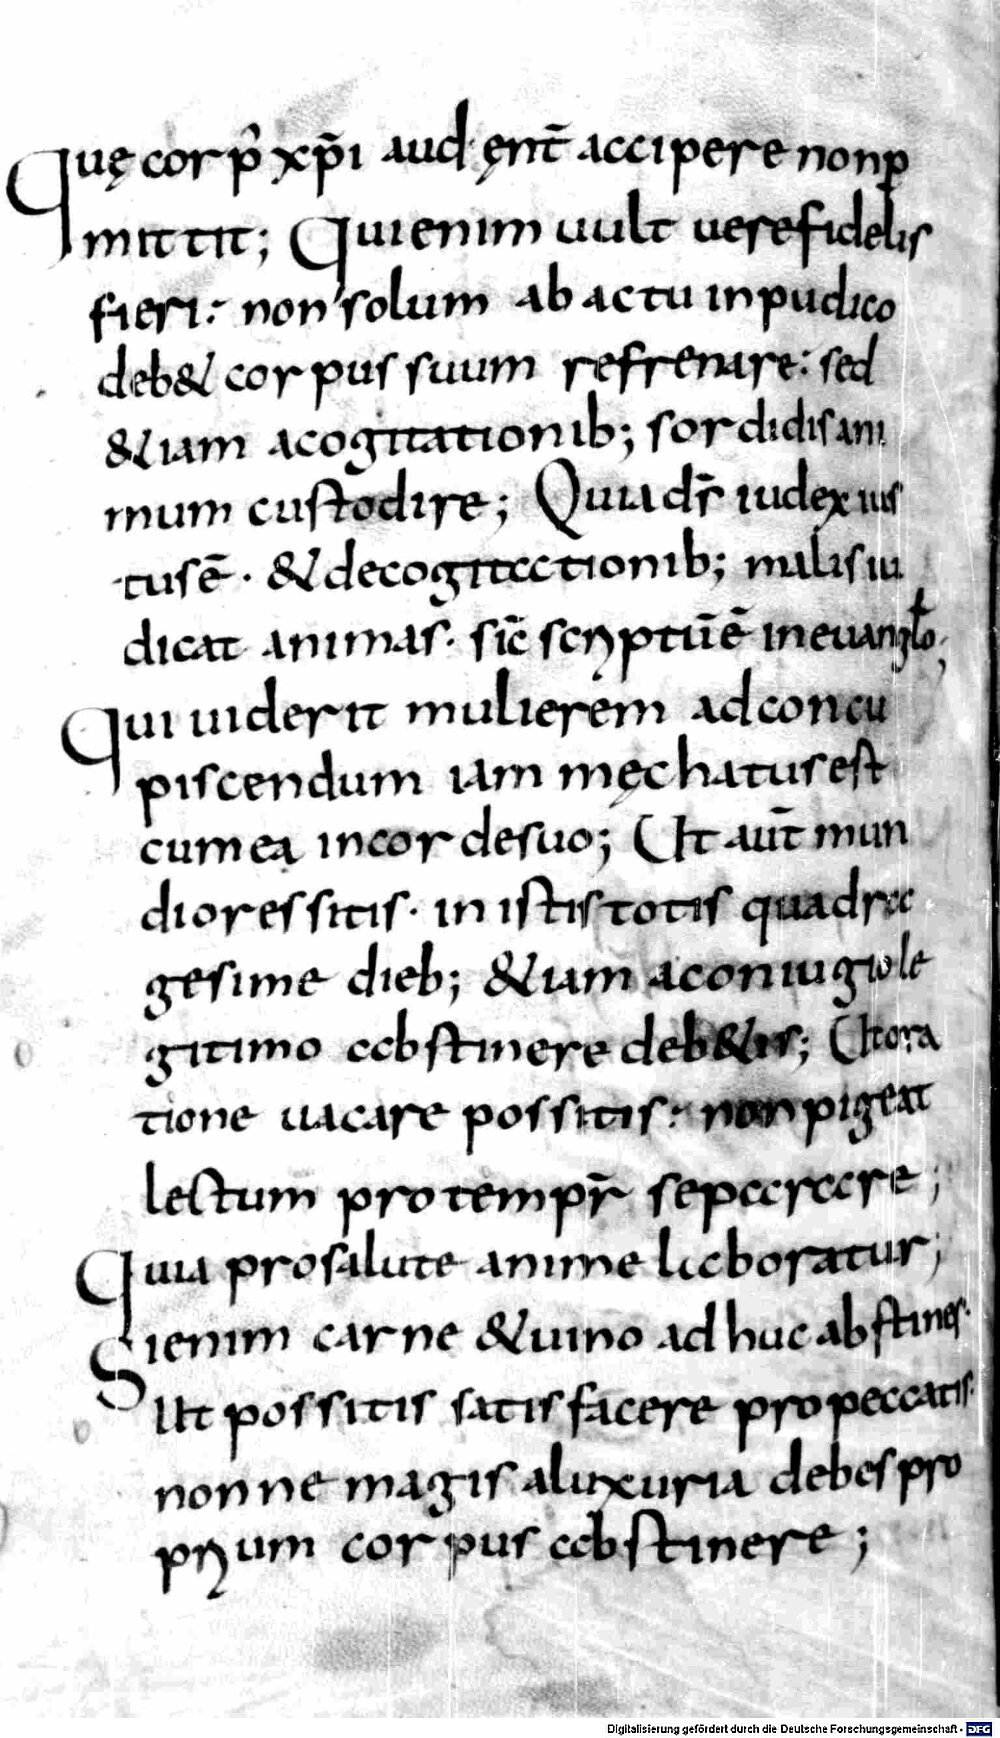 Quę cor pꝰ xp̄i aud ęnt̄ accipere nonp
mittit; Quienim uult uerefidelis
fieri: non solum ab actu inpudico
deb& corpus suum refrenare: sed
&iam acogitationib; sordidis ani
mum custodire; Quia dr̄ iudex ius
tus ē · & decogitationib; malis iu
dicat animas · sic̄ scriptū ē ineuanglo;
Qui uiderit mulierem ad concu
piscendum iam męchatus est
cum ea incorde suo; Ut aut̄ mun
diores sitis · in istis totis quadra
gesime dieb; &iam aconiugio le
gitimo abstinere deb&is; Ut ora
tione uacare possitis: non pigeat
lectum pro tempr̄ separare;
Quia pro salute anime laboratur;
Si enim carne & uino ad huc abstines·
Ut possitis satisfacere pro peccatis·
nonne magis aluxuria debes pro
prium corpus abstinere;
Digitalisierung gefördert durch die Deutsche Forschungsgemeinschaft - DFG